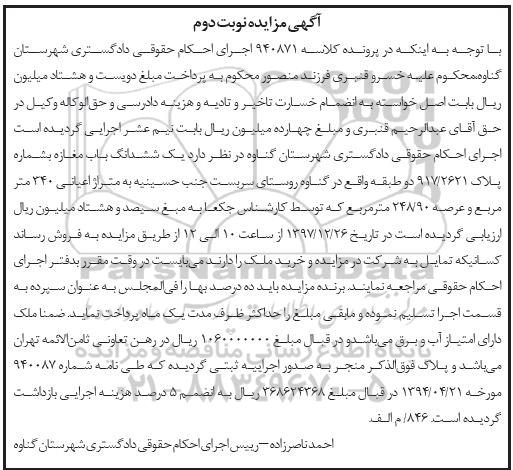 آگهی مزایده نوبت دوم
با توجه به اینکه در پرونده کلاسه ۹۴۰۸۷۱ اجرای احکام حقوقی دادگستری شهرستان
گناوه،محکوم علیه خسرو قنبری فرزند منصور محکوم به پرداخت مبلغ دویست و هشتاد میلیون
ریال بابت اصل خواسته به انضمام خسارت تاخیر و تادیه و هزینه دادرسی و حق‌الوکاله وکیل در
حق آقای عبدالرحیم قنبری و مبلغ چهارده میلیون ریال بابت نیم عشر اجرایی گردیده است
اجرای احکام حقوقی دادگستری شهرستان گناوه در نظر دارد یک ششدانگ باب مغازه بشماره
پلاک ۹۱۷/۲۶۲۱ دو طبقه واقع در گناوه روستای سربست جنب حسینیه به متراژ اعیانی ۳۴۰ متر
مربع و عرصه ۲۴۸/۹۰ مترمربع که توسط کارشناس جکعا به مبغ سیصد و هشتاد میلیون ریال
ارزیابی گردیده است در تاریخ ۱۳۹۷/۱۲/۲۶ از ساعت ۱۰ الی ۱۲ از طریق مزایده به فروش رساند
کسانیکه تمایل به شرکت در مزایده و خرید ملک را دارند می‌بایست در وقت مقرر بدفتر اجرای
احکام حقوقی مراجعه نمایند. برنده مزایده باید ده درصد بها را فی‌المجلس به عنوان سپرده به
قسمت اجرا تسلیم نموده و مابقی مبلغ را حداکثر ظرف مدت یک ماه پرداخت نماید. ضمنا ملک
دارای امتیاز آب و برق می‌باشد و در قبال مبلغ ۱۰۶۰۰۰۰۰۰۰ ریال در رهن تعاونی ثامن‌الائمه تهران
می‌باشد و پلاک فوق‌الذکر منجر به صدور اجراییه ثبتی گردیده که طی نامه شماره ۹۴۰۰۸۷
مورخه ۱۳۹۴/۰۴/۲۱ در قبال مبلغ ۳۶۸۶۳۴۳۶۸ ریال به انضمم ۵ درصد هزینه اجرایی بازداشت
گردیده است. ۸۴۶/ م الف.
احمد ناصرزاده – رییس اجرای احکام حقوقی دادگستری شهرستان گناوه
پایگاه اطلاع رسانی مناقصه و مزایده
۰۲۱-۸۸۳۴۹۶۷۰-۵